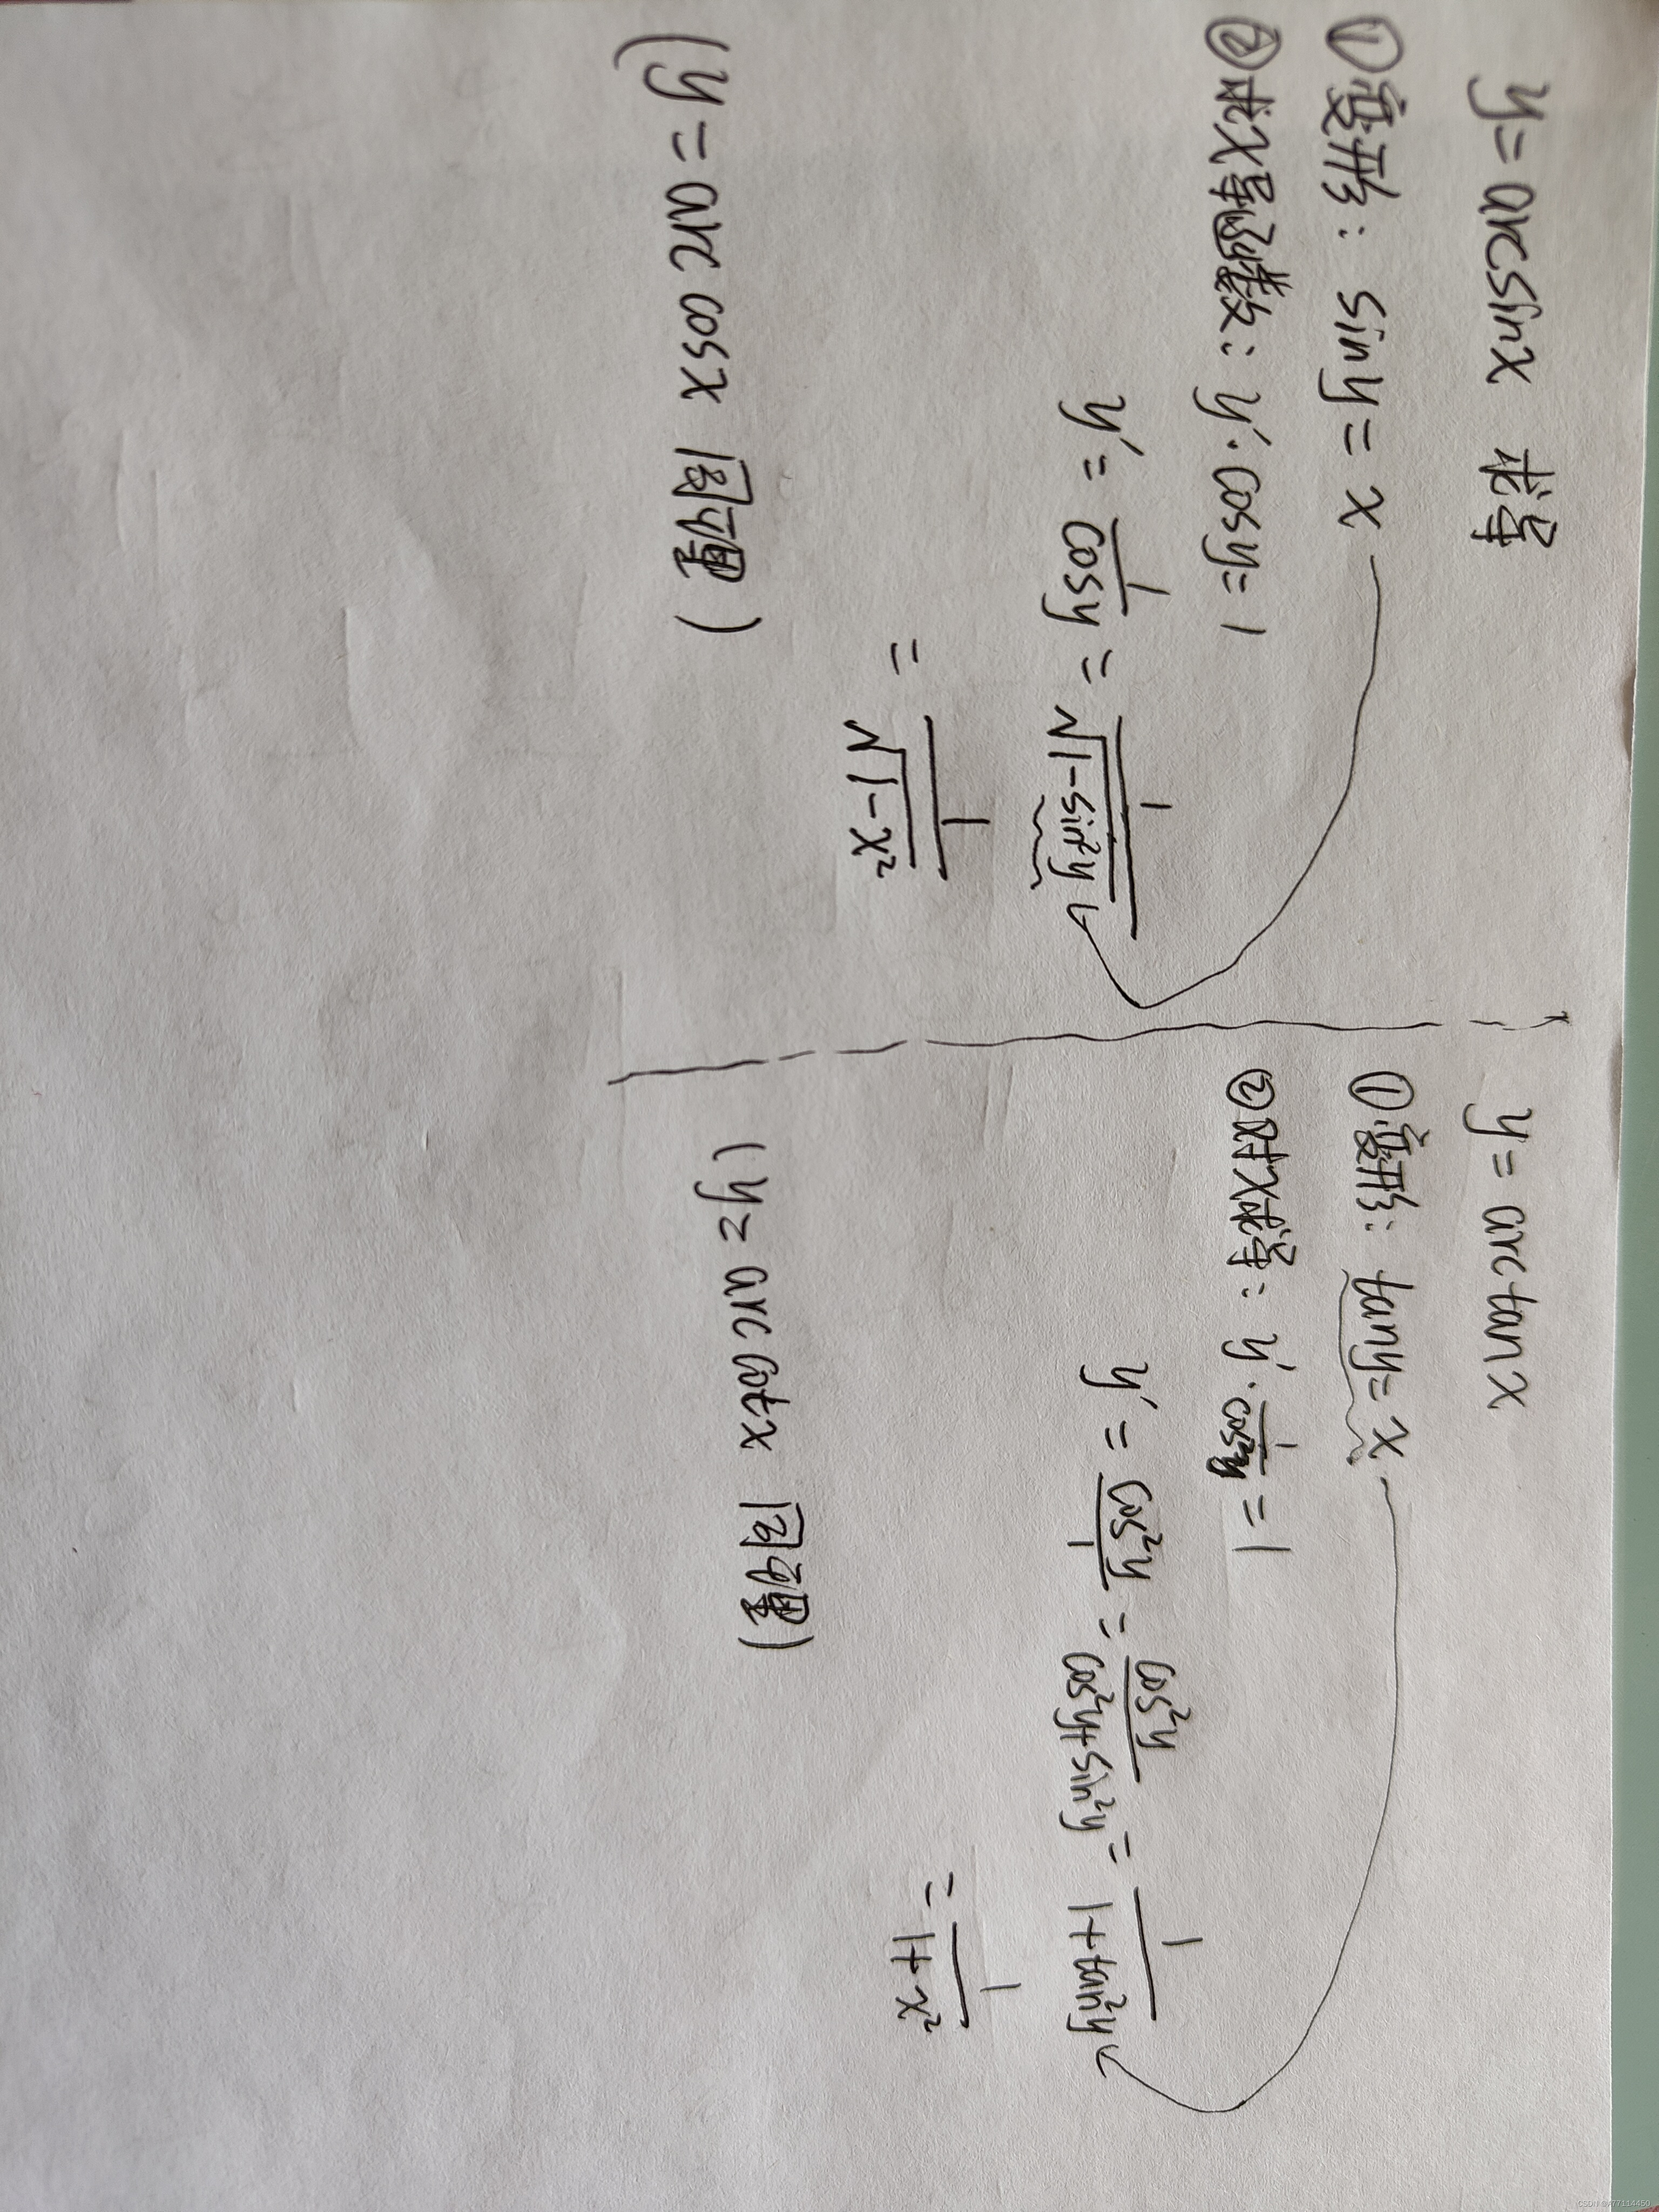 y = arcsinx 求导
①变形: siny = x
②求x导函数: y'·cosy = 1
y' = 1/cosy = 1/√(1-sin²y)
= 1/√(1-x²)
(y = arc cosx 同理)
y = arctanx
①变形: tany = x
②对x求导: y'·1/cos²y = 1
y' = cos²y/1 = cos²y/(cos²y+sin²y) = 1/(1+tan²y)
= 1/(1+x²)
(y = arc cotx 同理)